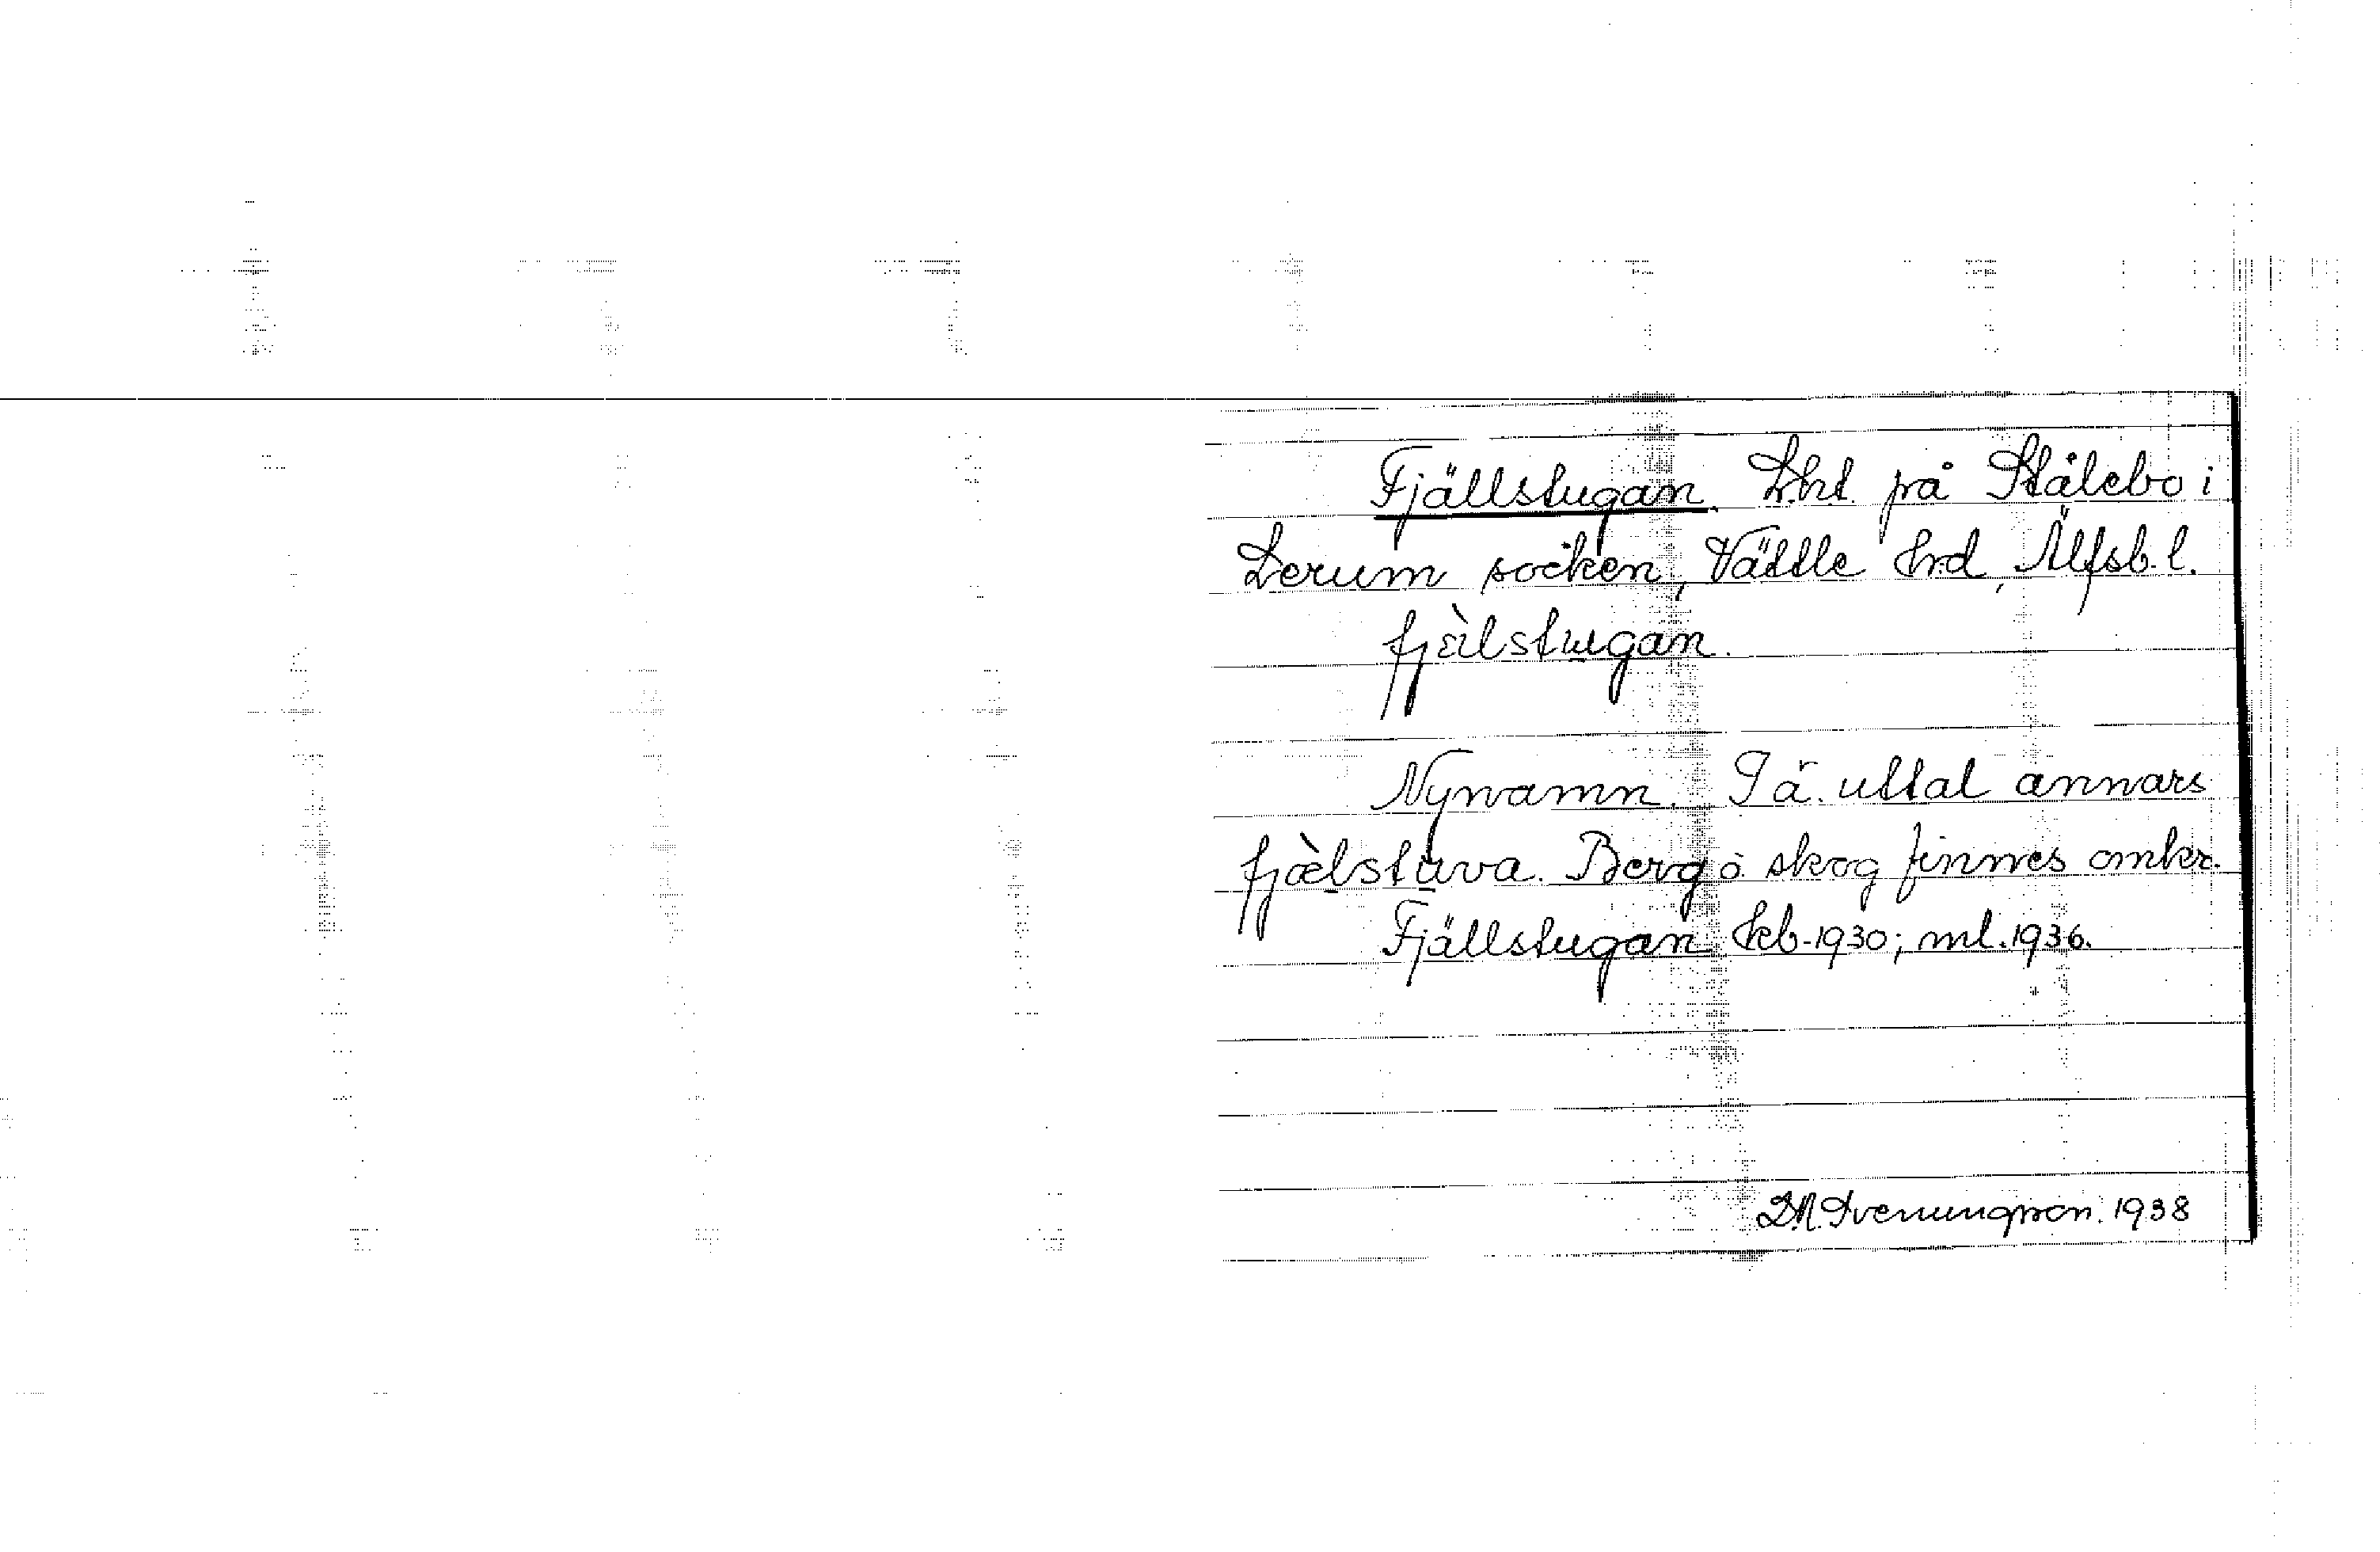 Fjällstugan. Lht. på Stålebo i
Lerum socken, Vättle hrd, Älfsb. l.
fjælstugan.
Nynamn. I ä. uttal annars
fjælstuva. Berg o. skog finnes omkr.
Fjällstugan kb. 1930; ml. 1936.
D.A. Svenungsson. 1938